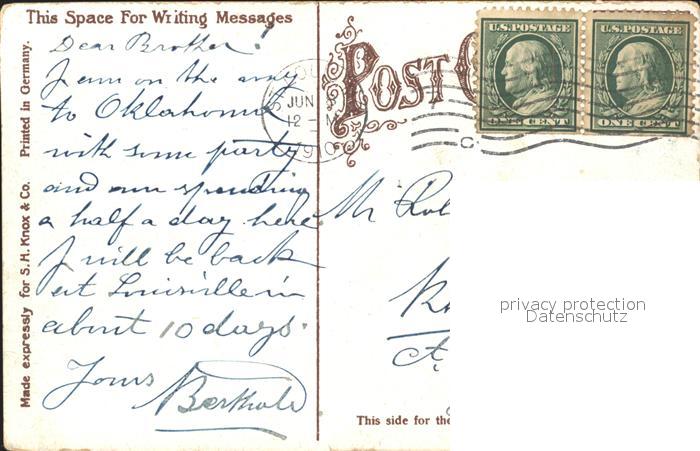 This Space For Writing Messages
Made expressly for S. H. Knox & Co. Printed in Germany.
Dear Brother!
I am on the way
to Oklahoma
with some party
and am spending
a half a day here
I will be back
at Louisville in
about 10 days.
Yours
Berthold
POST C
JUN
12 - M
1910
U.S. POSTAGE
ONE CENT
U.S. POSTAGE
ONE CENT
Mr
privacy protection
Datenschutz
This side for the